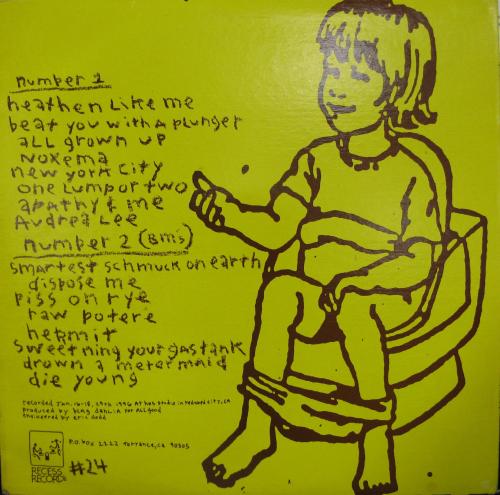 number 1
heathen Like me
beat you with A plunger
aLL grown up
Noxema
new york City
one Lump or two
apathy & me
Audrea Lee
number 2 (Bm's)
smartest schmuck on earth
dispose me
piss on rye
raw potere
hermit
sweetning your gas tank
drown a meter maid
die young
recorded Jan. 16-18, 1996 At hos studio in Redondo city, CA
produced by bing dahLiA for ALL good
engineered by eric dodd
P.O. box 2222 torrance, CA 90505
RECESS
RECORDS
#24